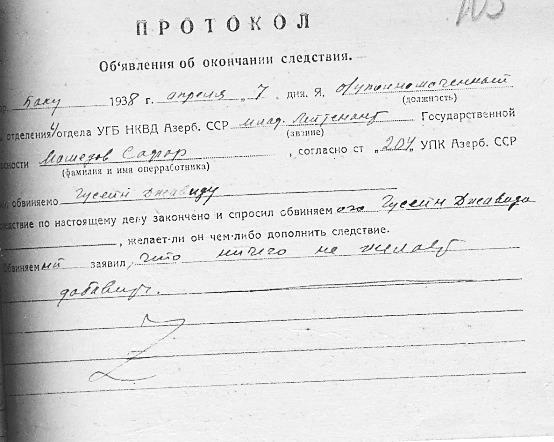 ПРОТОКОЛ
Об'явления об окончании следствия.
ор. Баку 1938 г. апреля „7 дня. Я, о/уполномоченный
(должность)
отделения 4 отдела УГБ НКВД Азерб. ССР млад. лейтенант Государственной
(звание)
асности Мамедов , согласно ст „204 УПК Азерб. ССР
(фамилия и имя оперработника)
обвиняемо Гусейн Джавиду
едствие по настоящему делу закончено и спросил обвиняемого Гусейн Джавида
, желает-ли он чем-либо дополнить следствие.
Обвиняемый заявил, что ничего не желает
добавить.